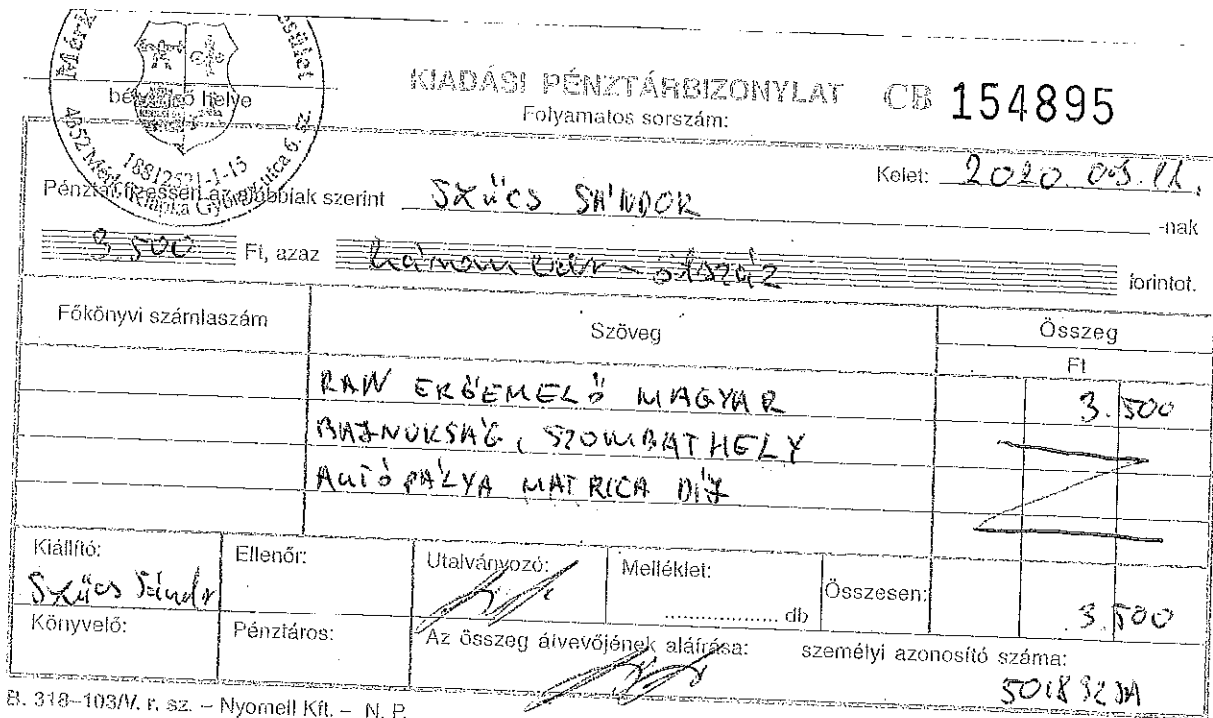 egyesület
befizető helye
4352 Mérk, Klapka György utca 6.
KIADÁSI PÉNZTÁRBIZONYLAT CB 154895
Folyamatos sorszám:
Kelet: 2020.
Pénztár fizessen az alábbiak szerint SZŰCS SÁNDOR -nak
3.500 Ft, azaz háromezer-ötszáz forintot.
Főkönyvi számlaszám Szöveg Összeg
Ft
RAW ERŐEMELŐ MAGYAR 3.500
BAJNOKSÁG, SZOMBATHELY
AUTÓPÁLYA MATRICA DÍJ
Kiállító: Ellenőr: Utalványozó: Melléklet: Összesen:
Szűcs Sándor .................. db 3.500
Könyvelő: Pénztáros: Az összeg átvevőjének aláírása: személyi azonosító száma:
B. 318–103/V. r. sz. – Nyomell Kft. – N. P.